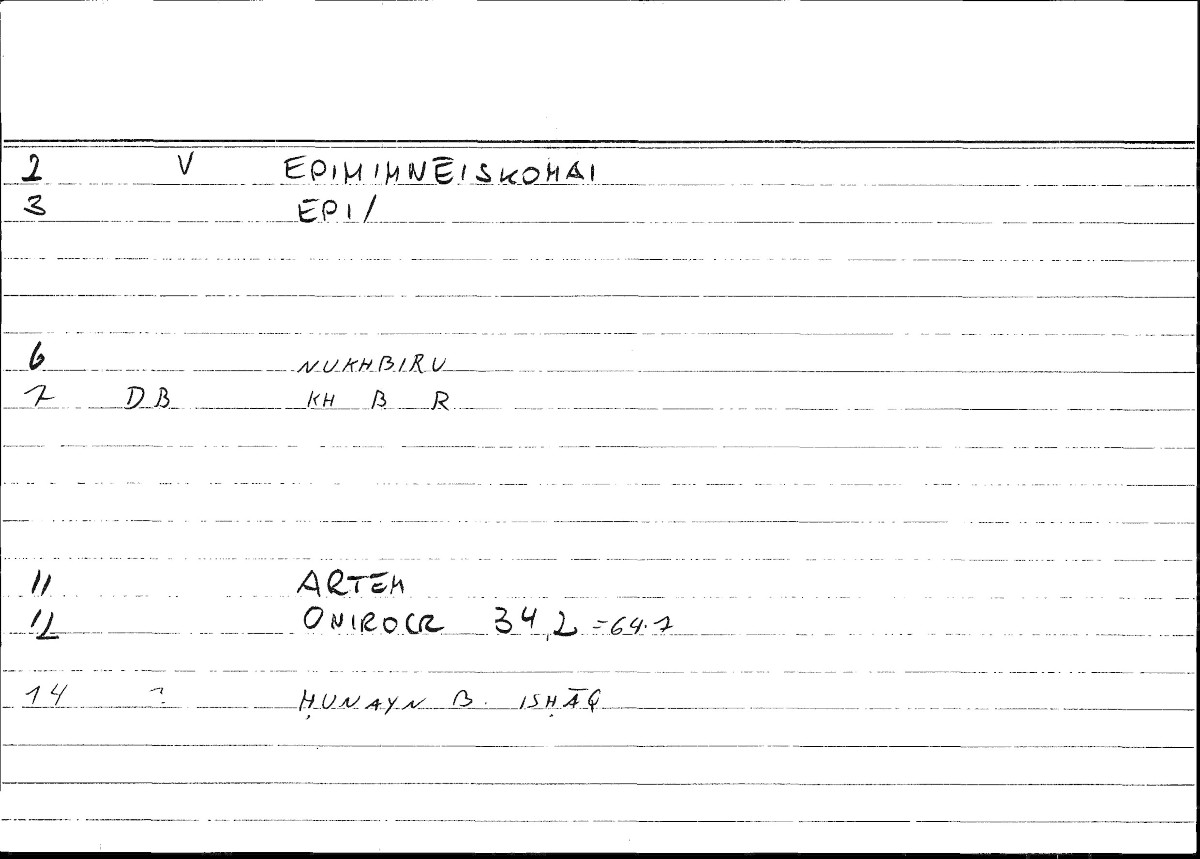 2 V EPIMIMNĒISKOMAI
3 EPI/
6 NUKHBIRU
7 DB KH B R
11 ARTEM
12 ONIROCR 34,2 =64.7
14 ? ḤUNAYN B. ISḤĀQ